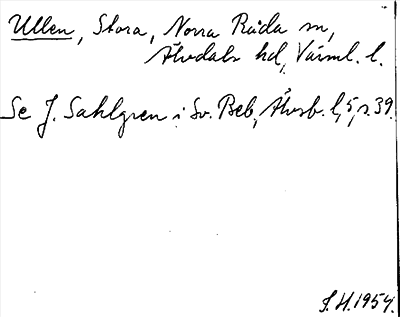 Ullen, Stora, Norra Råda sn,
Älvdals hd, Värml. l.
Se J. Sahlgren i Sv. Beb, Älvsb. l, 5, s. 39.
S.H. 1954.